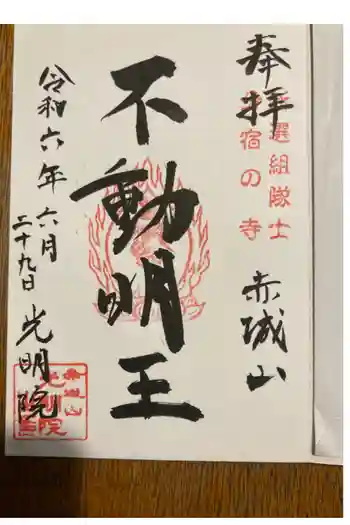 奉拝
選組隊士
宿の寺
赤城山
不動明王
令和六年六月
二十九日
光明院